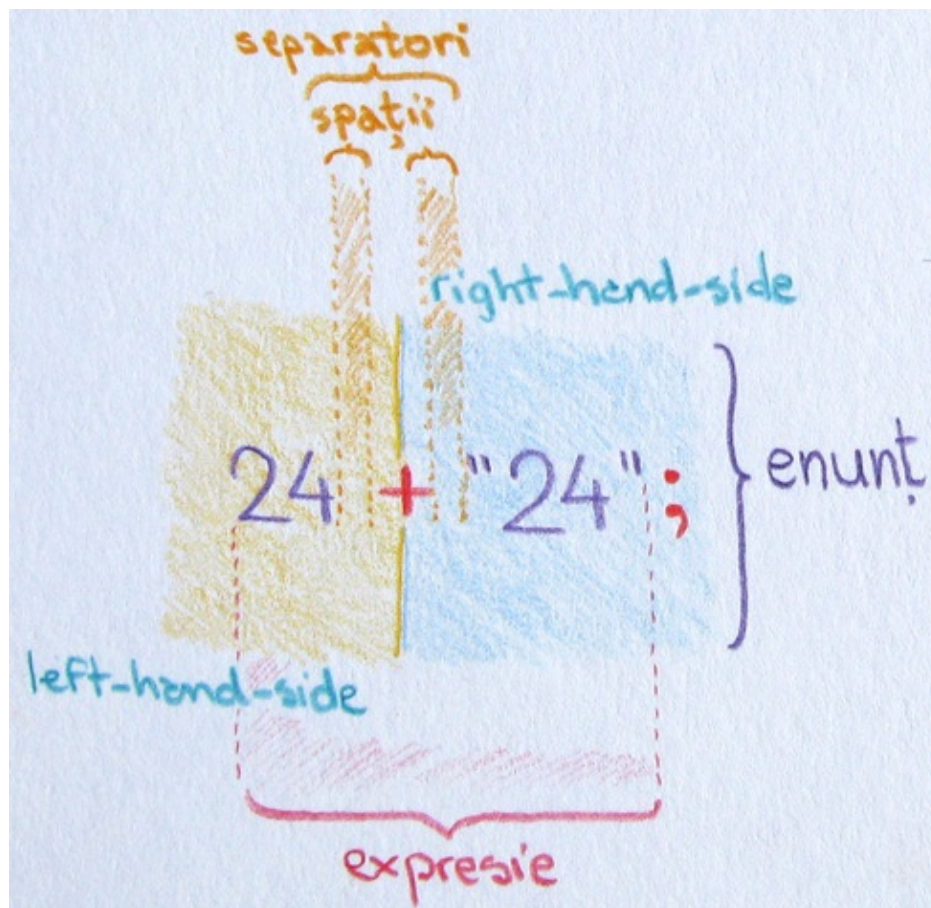 separatori
spații
right-hand-side
24 + "24";
enunț
left-hand-side
expresie